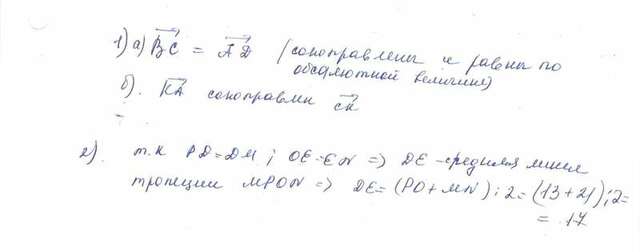 1) а) BC = AD (соноправлены и равны по
абсалютной величине)
б). KA соноправлен CK
2). т.к PD=DM; OE=EN => DE - средняя линия
трапеции MPON => DE = (PO + MN) : 2 = (13 + 21) : 2 =
= 17